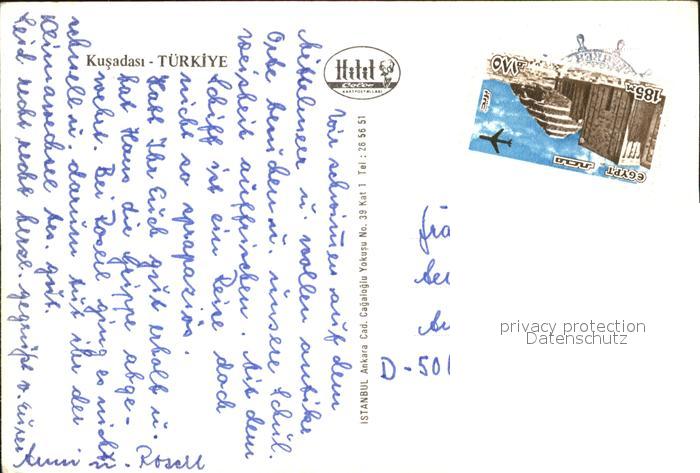 Kuşadası - TÜRKİYE
Hitit
Color
KARTPOSTALLARI
ISTANBUL Ankara Cad. Cağaloğlu Yokuşu No. 39 Kat 1 Tel: 26 56 51
Wir schwimmen auf dem
Mittelmeer u. wollen antike
Orte besuchen u. unsere Schul-
weisheit auffrischen. Mit dem
Schiff ist ein Reise doch
nicht so strapaziös.
Habt Ihr Euch gut erholt u.
hat Hans die Grippe abge-
wehrt. Bei Rosell ging es nicht
schnell u. darum tut ihr der
Klimawechsel bes. gut.
Seid recht recht herzl. gegrüßt v. Euren
Anni u. Rosell
EGYPT
185
١٨٥
مصر
D-501
privacy protection
Datenschutz